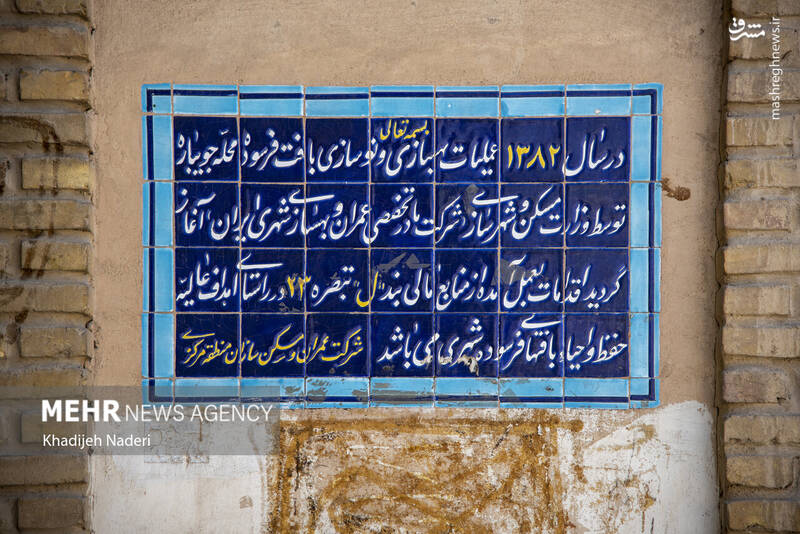 مشرق
mashreghnews.ir
بسمه تعالی
در سال ۱۳۸۲ عملیات بهسازی و نوسازی بافت فرسوده محله جویباره
توسط وزارت مسکن و شهرسازی شرکت مادر تخصصی عمران و بهسازی شهری ایران آغاز
گردید اقدامات بعمل آمده از منابع مالی بند ل تبصره ۲۳ در راستای اهداف عالیه
حفظ و احیاء بافتهای فرسوده شهری می باشد شرکت عمران و مسکن سازان منطقه مرکزی
MEHR NEWS AGENCY
Khadijeh Naderi